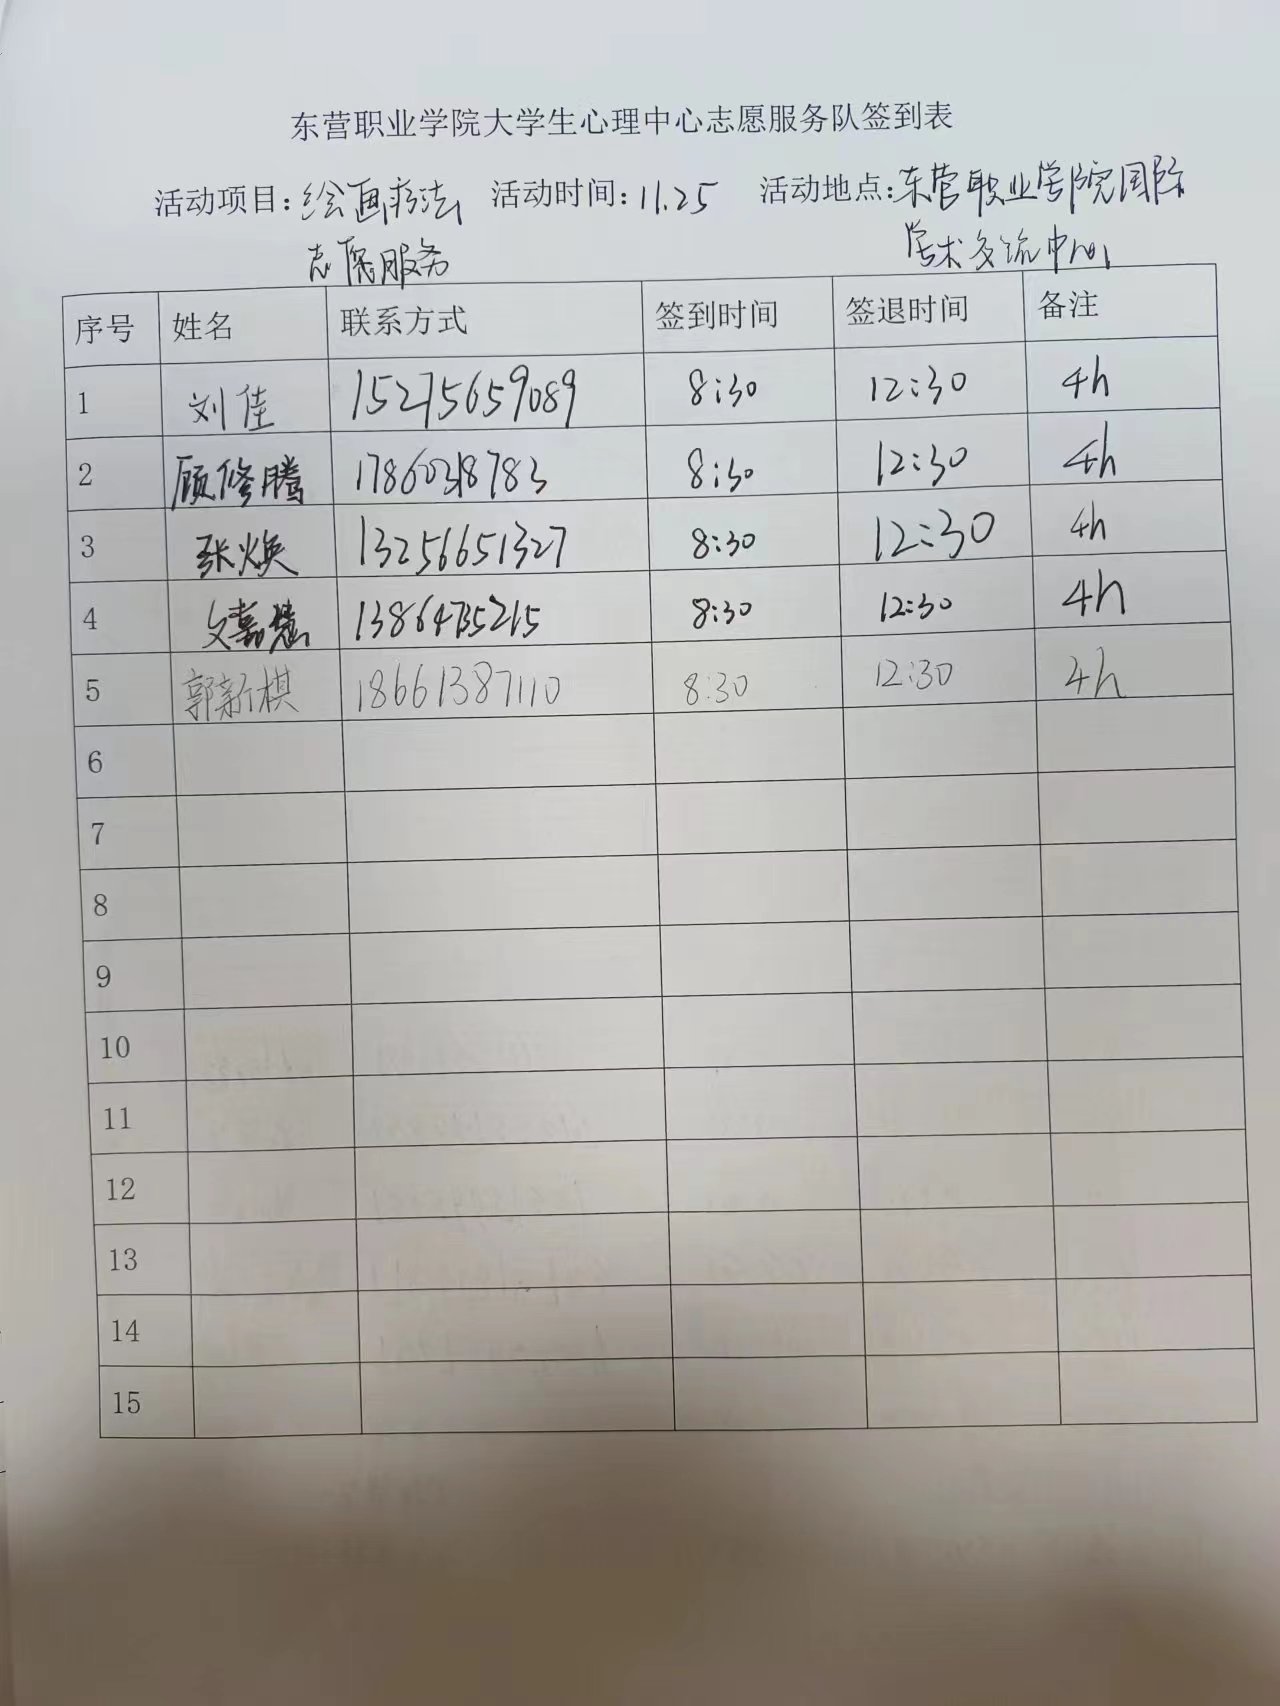 东营职业学院大学生心理中心志愿服务队签到表
活动项目：绘画疗法 活动时间：11.25 活动地点：东营职业学院国际
志愿服务 学术交流中心
序号 姓名 联系方式 签到时间 签退时间 备注
1 刘佳 15275659089 8:30 12:30 4h
2 顾修腾 17860318783 8:30 12:30 4h
3 张焕 13256651327 8:30 12:30 4h
4 文嘉慧 13864735215 8:30 12:30 4h
5 郭新棋 18661387110 8:30 12:30 4h
6
7
8
9
10
11
12
13
14
15